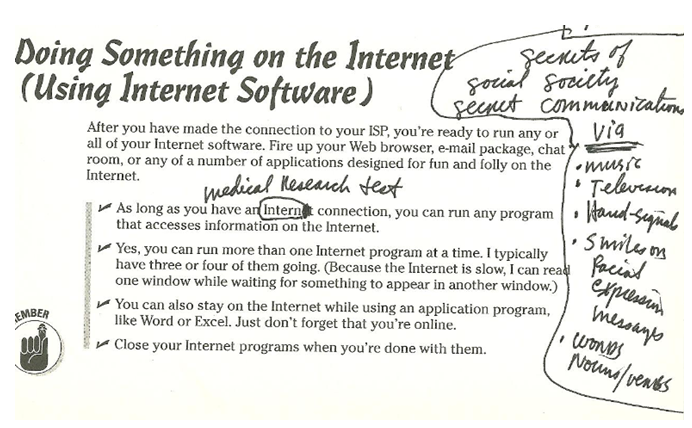 Doing Something on the Internet
(Using Internet Software)
After you have made the connection to your ISP, you're ready to run any or
all of your Internet software. Fire up your Web browser, e-mail package, chat
room, or any of a number of applications designed for fun and folly on the
Internet.
medical Research test
As long as you have an Internet connection, you can run any program
that accesses information on the Internet.
Yes, you can run more than one Internet program at a time. I typically
have three or four of them going. (Because the Internet is slow, I can read
one window while waiting for something to appear in another window.)
You can also stay on the Internet while using an application program,
like Word or Excel. Just don't forget that you're online.
Close your Internet programs when you're done with them.
EMBER
secrets of
social society
secret communications
Via
• music
• Television
• Hand-signals
• Smiles on
Facial
expression
messages
• words
Nouns/verbs